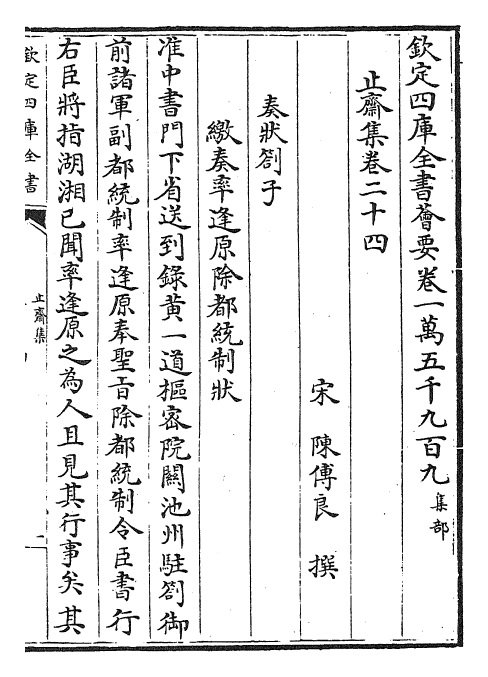 欽定四庫全書薈要卷一萬五千九百九集部
止齋集卷二十四
宋陳傅良撰
奏狀劄子
繳奏率逢原除都統制狀
准中書門下省送到錄黃一道樞宻院關池州駐劄御
前諸軍副都統制率逢原奉聖㫖除都統制令臣書行
右臣將指湖湘已聞率逢原之為人且見其行事矣其
欽定四庫全書
止齋集
一